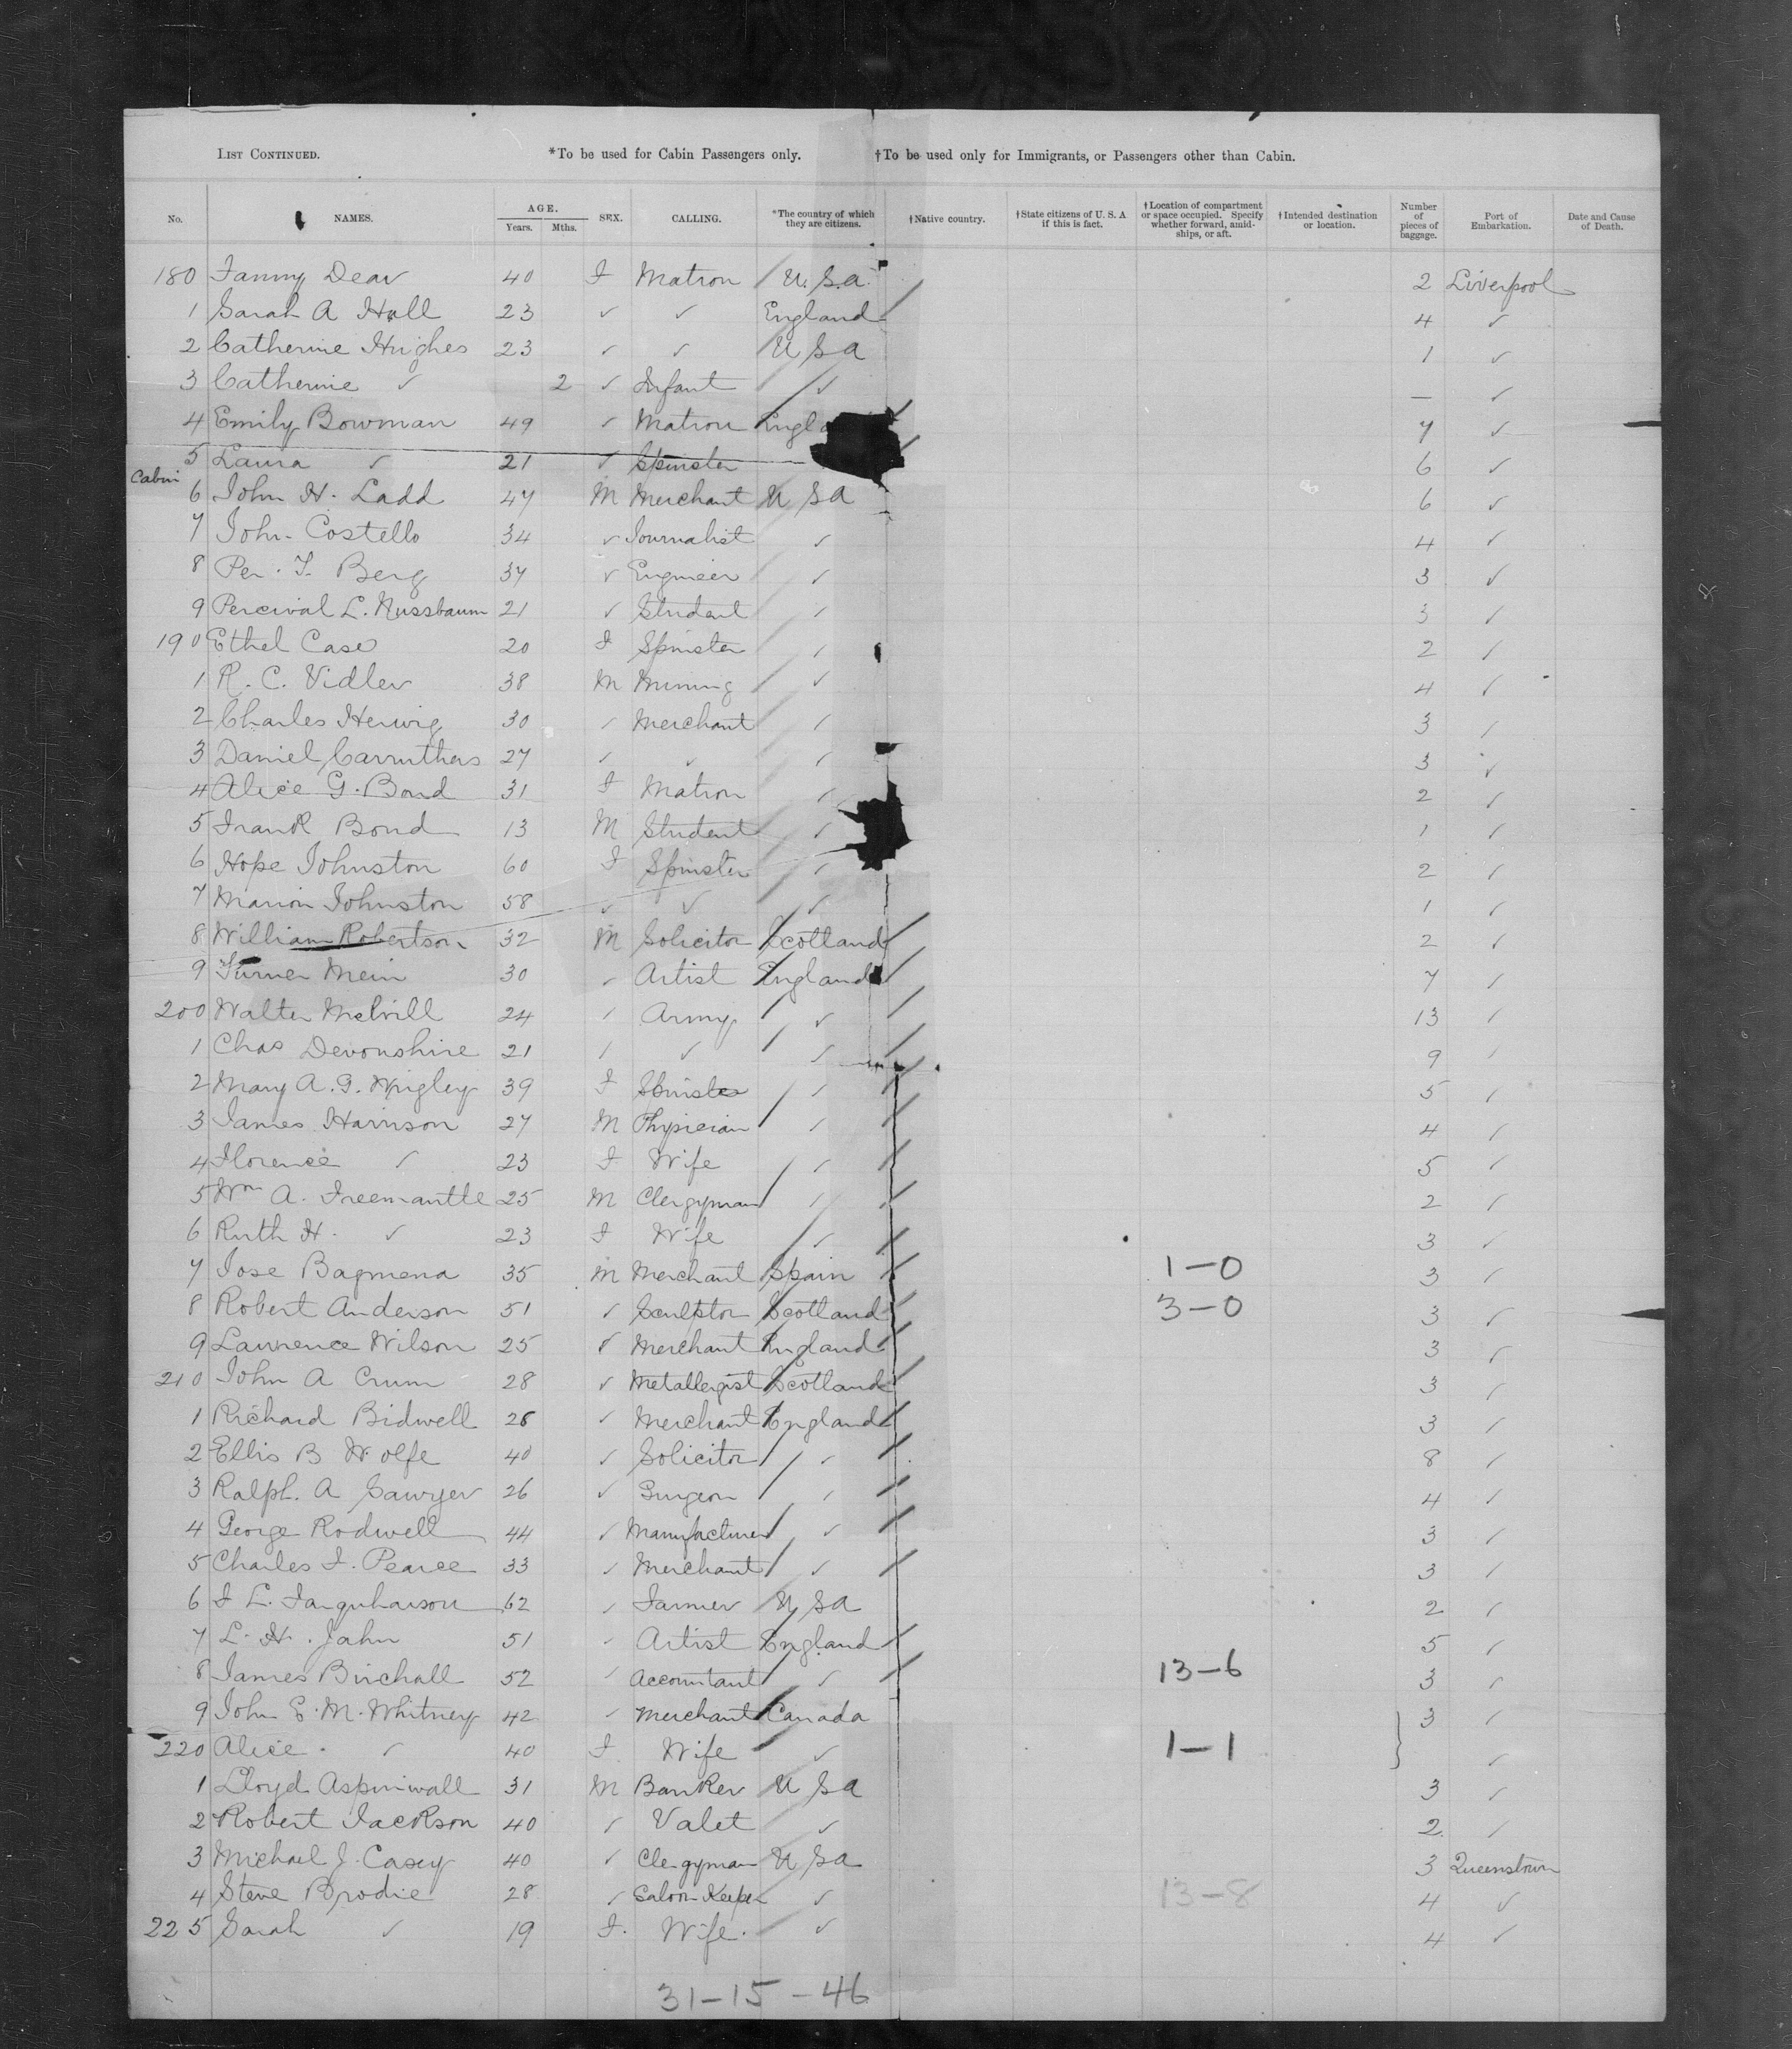 LIST CONTINUED. *To be used for Cabin Passengers only. †To be used only for Immigrants, or Passengers other than Cabin.
No. NAMES. AGE. Years. Mths. SEX. CALLING. *The country of which they are citizens. †Native country. †State citizens of U. S. A if this is fact. †Location of compartment or space occupied. Specify whether forward, amidships, or aft. †Intended destination or location. Number of pieces of baggage. Port of Embarkation. Date and Cause of Death.
180 Fanny Dear 40 F Matron U.S.A. 2 Liverpool
1 Sarah A Hall 23 ✓ ✓ England 4 ✓
2 Catherine Hughes 23 ✓ ✓ U S A 1 ✓
3 Catherine ✓ 2 ✓ Infant ✓ — ✓
4 Emily Bowman 49 ✓ Matron 7 ✓
5 Laura ✓ 21 ✓ Spinster 6 ✓
Cabin
6 John H. Ladd 47 M Merchant U S A 6 ✓
7 John Costello 34 ✓ Journalist ✓ 4 ✓
8 Per. T. Berg 37 ✓ Engineer ✓ 3 ✓
9 Percival L. Nussbaum 21 ✓ Student ✓ 3 ✓
190 Ethel Case 20 F Spinster ✓ 2 ✓
1 R. C. Vidler 38 M Mining ✓ 4 ✓
2 Charles Herwig 30 ✓ Merchant ✓ 3 ✓
3 Daniel Carruthers 27 ✓ ✓ ✓ 3 ✓
4 Alice G. Bond 31 F Matron ✓ 2 ✓
5 Frank Bond 13 M Student ✓ 1 ✓
6 Hope Johnston 60 F Spinster ✓ 2 ✓
7 Marion Johnston 58 ✓ ✓ ✓ 1 ✓
8 William Robertson 32 M Solicitor Scotland 2 ✓
9 Turner Mein 30 ✓ Artist England 7 ✓
200 Walter Melvill 24 ✓ Army ✓ 13 ✓
1 Chas Devonshire 21 ✓ ✓ ✓ 9 ✓
2 Mary A. G. Wrigley 39 F Spinster ✓ 5 ✓
3 James Harrison 27 M Physician ✓ 4 ✓
4 Florence ✓ 23 F Wife ✓ 5 ✓
5 Wm A. Freemantle 25 M Clergyman ✓ 2 ✓
6 Ruth H. ✓ 23 F Wife ✓ 3 ✓
7 Jose Bagmena 35 M Merchant Spain 1-0 3 ✓
8 Robert Anderson 51 ✓ Sculptor Scotland 3-0 3 ✓
9 Lawrence Wilson 25 ✓ Merchant England 3 ✓
210 John A Crum 28 ✓ Metallergist Scotland 3 ✓
1 Richard Bidwell 28 ✓ Merchant England 3 ✓
2 Ellis B Wolfe 40 ✓ Solicitor ✓ 8 ✓
3 Ralph. A Sawyer 26 ✓ Surgeon ✓ 4 ✓
4 George Rodwell 44 ✓ Manufacturer ✓ 3 ✓
5 Charles F. Pearce 33 ✓ Merchant ✓ 3 ✓
6 F L. Farquharson 62 ✓ Farmer U S A 2 ✓
7 L. H. Jahn 51 ✓ Artist England 5 ✓
8 James Birchall 52 ✓ Accountant ✓ 13-6 3 ✓
9 John E. M. Whitney 42 ✓ Merchant Canada 3 ✓
220 Alice ✓ 40 F. Wife ✓ 1-1 ✓
1 Lloyd Aspinwall 31 M Banker U S A 3 ✓
2 Robert Jackson 40 ✓ Valet ✓ 2 ✓
3 Michael J. Casey 40 ✓ Clergyman U S A 3 Queenstown
4 Steve Brodie 28 ✓ Saloon Keeper ✓ 13-8 4 ✓
225 Sarah ✓ 19 F. Wife. ✓ 4 ✓
31-15-46